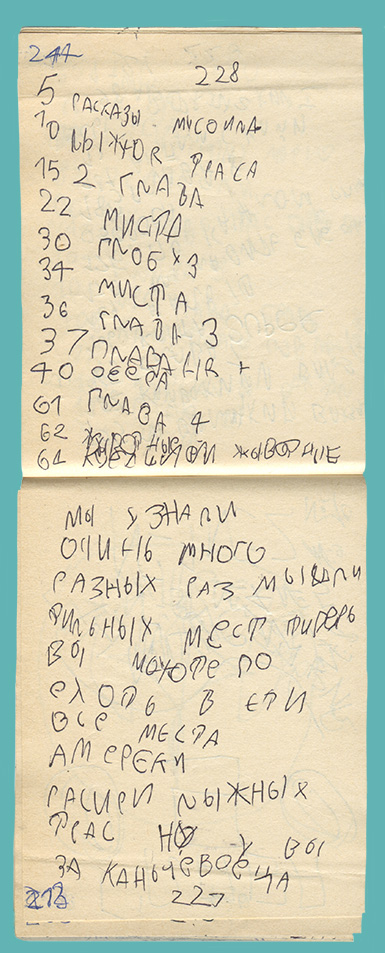 244
228
5 РАСКАЗЫ МУСОИЛА
10 ЛЫЖЮЯ ТРАСА
15 2 ГЛАВА
22 МИСТА
30 ГЛОБУЗ
34 МИСТА
36 ГЛАВА 3
37 ГЛАВА
40 ОСЕРА
61 ГЛАВА 4
62
64 ЖЫВОТНЫЕ
МЫ УЗНАЛИ
ОЧИНЬ МНОГО
РАЗНЫХ РАЗ МЫВАЛИ
ТИЛЬНЫХ МЕСТ ТИПЕРЬ
ВЫ МОЖОТЕ ПО
ЕХОТЬ В ЕТИ
ВСЕ МЕСТА
АМЕРЕКИ
РАСИРИ ЛЫЖНЫХ
ТРАС НО У ВЫ
ЗА КАНЫЧЕВОЕЦА
213
227